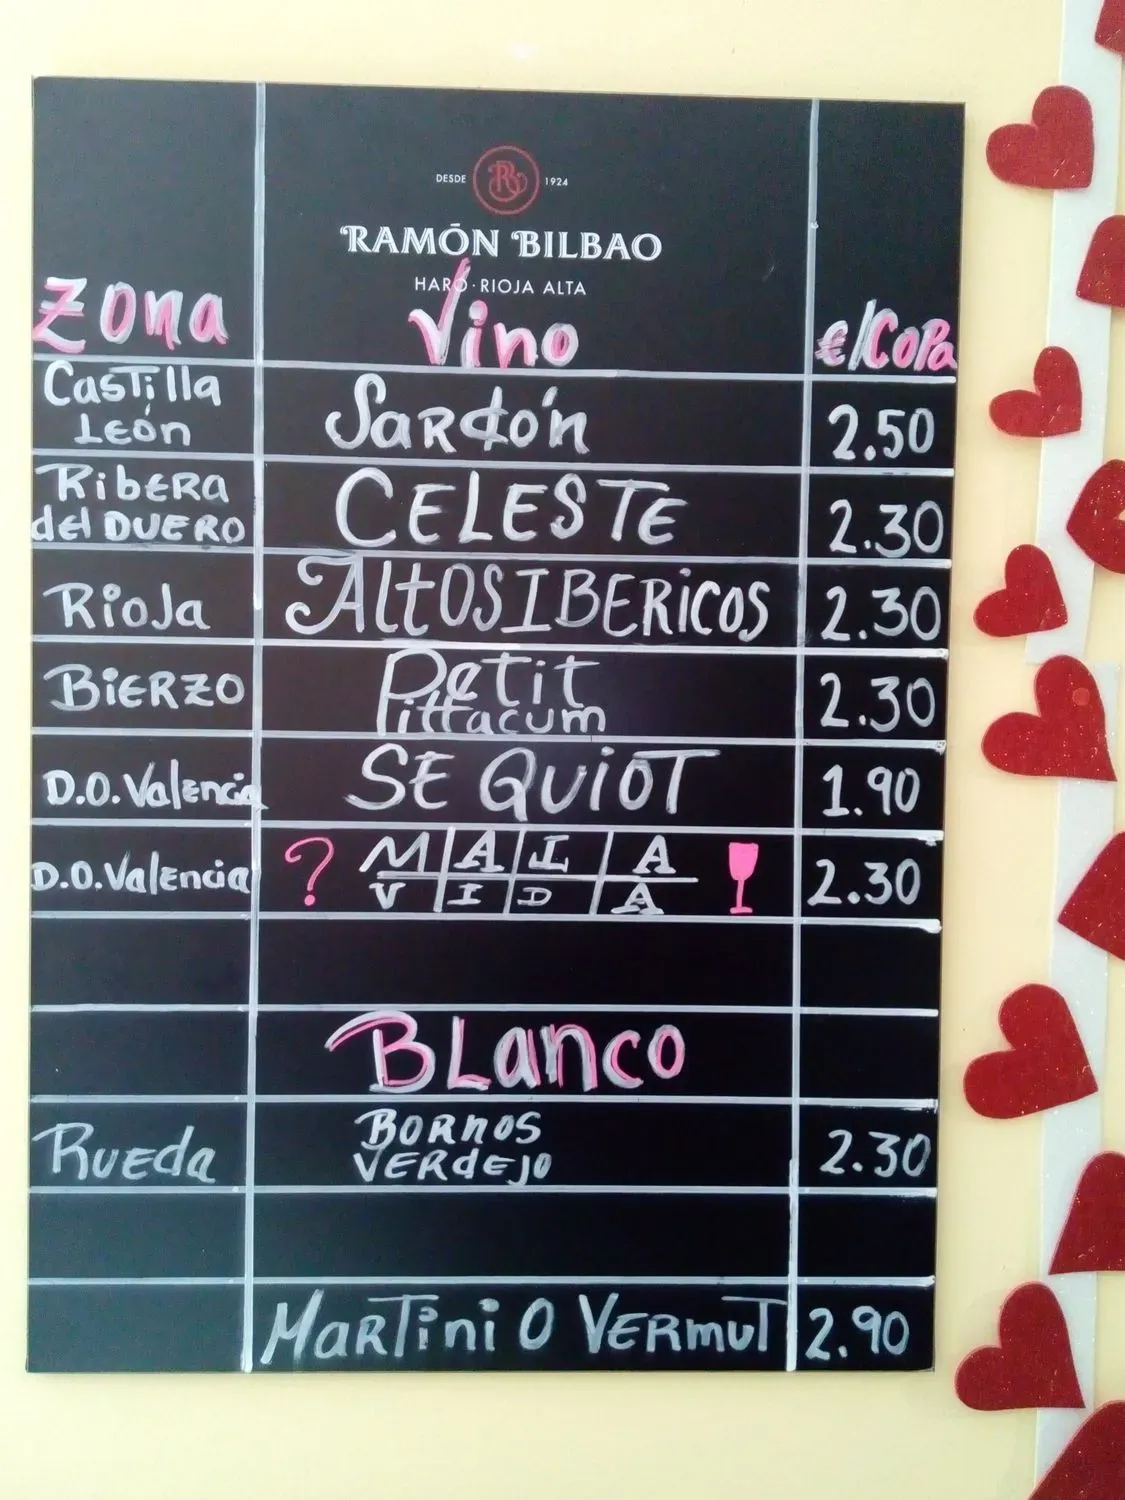 DESDE 1924
RAMÓN BILBAO
HARO · RIOJA ALTA
Zona Vino €/Copa
Castilla
León Sardón 2.50
Ribera
del DUERO CELESTE 2.30
Rioja ALTOS IBERICOS 2.30
BIERZO Petit
Pittacum 2.30
D.O. Valencia SE QUIOT 1.90
D.O. Valencia ? MAIA 2.30
VIDA
BLanco
Rueda BORNOS 2.30
VERdEJO
MaRTini O VERmuT 2.90